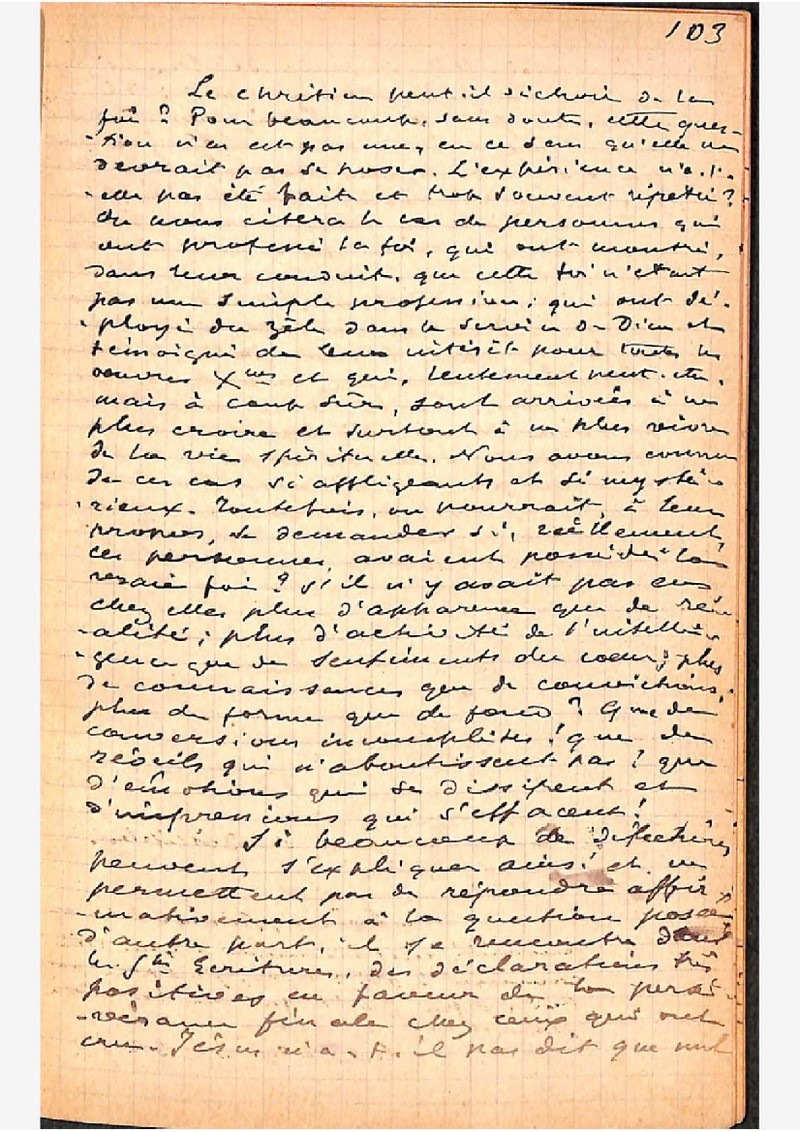 103
Le chrétien peut-il déchoir de la
foi ? Pour beaucoup, sans doute, cette ques-
tion n'en est pas une, en ce sens qu'elle ne
devrait pas se poser. L'expérience n'a-t-
-elle pas été faite et trop souvent répétée ?
On nous citera le cas de personnes qui
ont professé la foi, qui ont montré,
dans leur conduite, que cette foi n'était
pas une simple profession ; qui ont dé-
-ployé du zèle dans le service de Dieu et
témoigné de leur intérêt pour toutes les
oeuvres Xnes et qui, lentement peut-être,
mais à coup sûr, sont arrivées à ne
plus croire et surtout à ne plus vivre
de la vie spirituelle. Nous avons connu
de ces cas si affligeants et si mysté-
-rieux. Toutefois, on pourrait, à leur
propos, se demander si, réellement,
ces personnes avaient possédé la
vraie foi ? S'il n'y avait pas eu
chez elles plus d'apparence que de ré-
-alité ; plus d'activité de l'intelli-
-gence que de sentiments du coeur ; plus
de connaissances que de convictions,
plus de forme que de fond ? Que de
conversions incomplètes ! que de
réveils qui n'aboutissent pas ! que
d'émotions qui se dissipent et
d'impressions qui s'effacent !
Si beaucoup de défections
peuvent s'expliquer ainsi et ne
permettent pas de répondre affir-
-mativement à la question posée
d'autre part, il se rencontre dans
les Stes Ecritures, des déclarations très
positives en faveur de la persé-
-vérance finale chez ceux qui ont
cru. Jésus n'a-t-il pas dit que nul